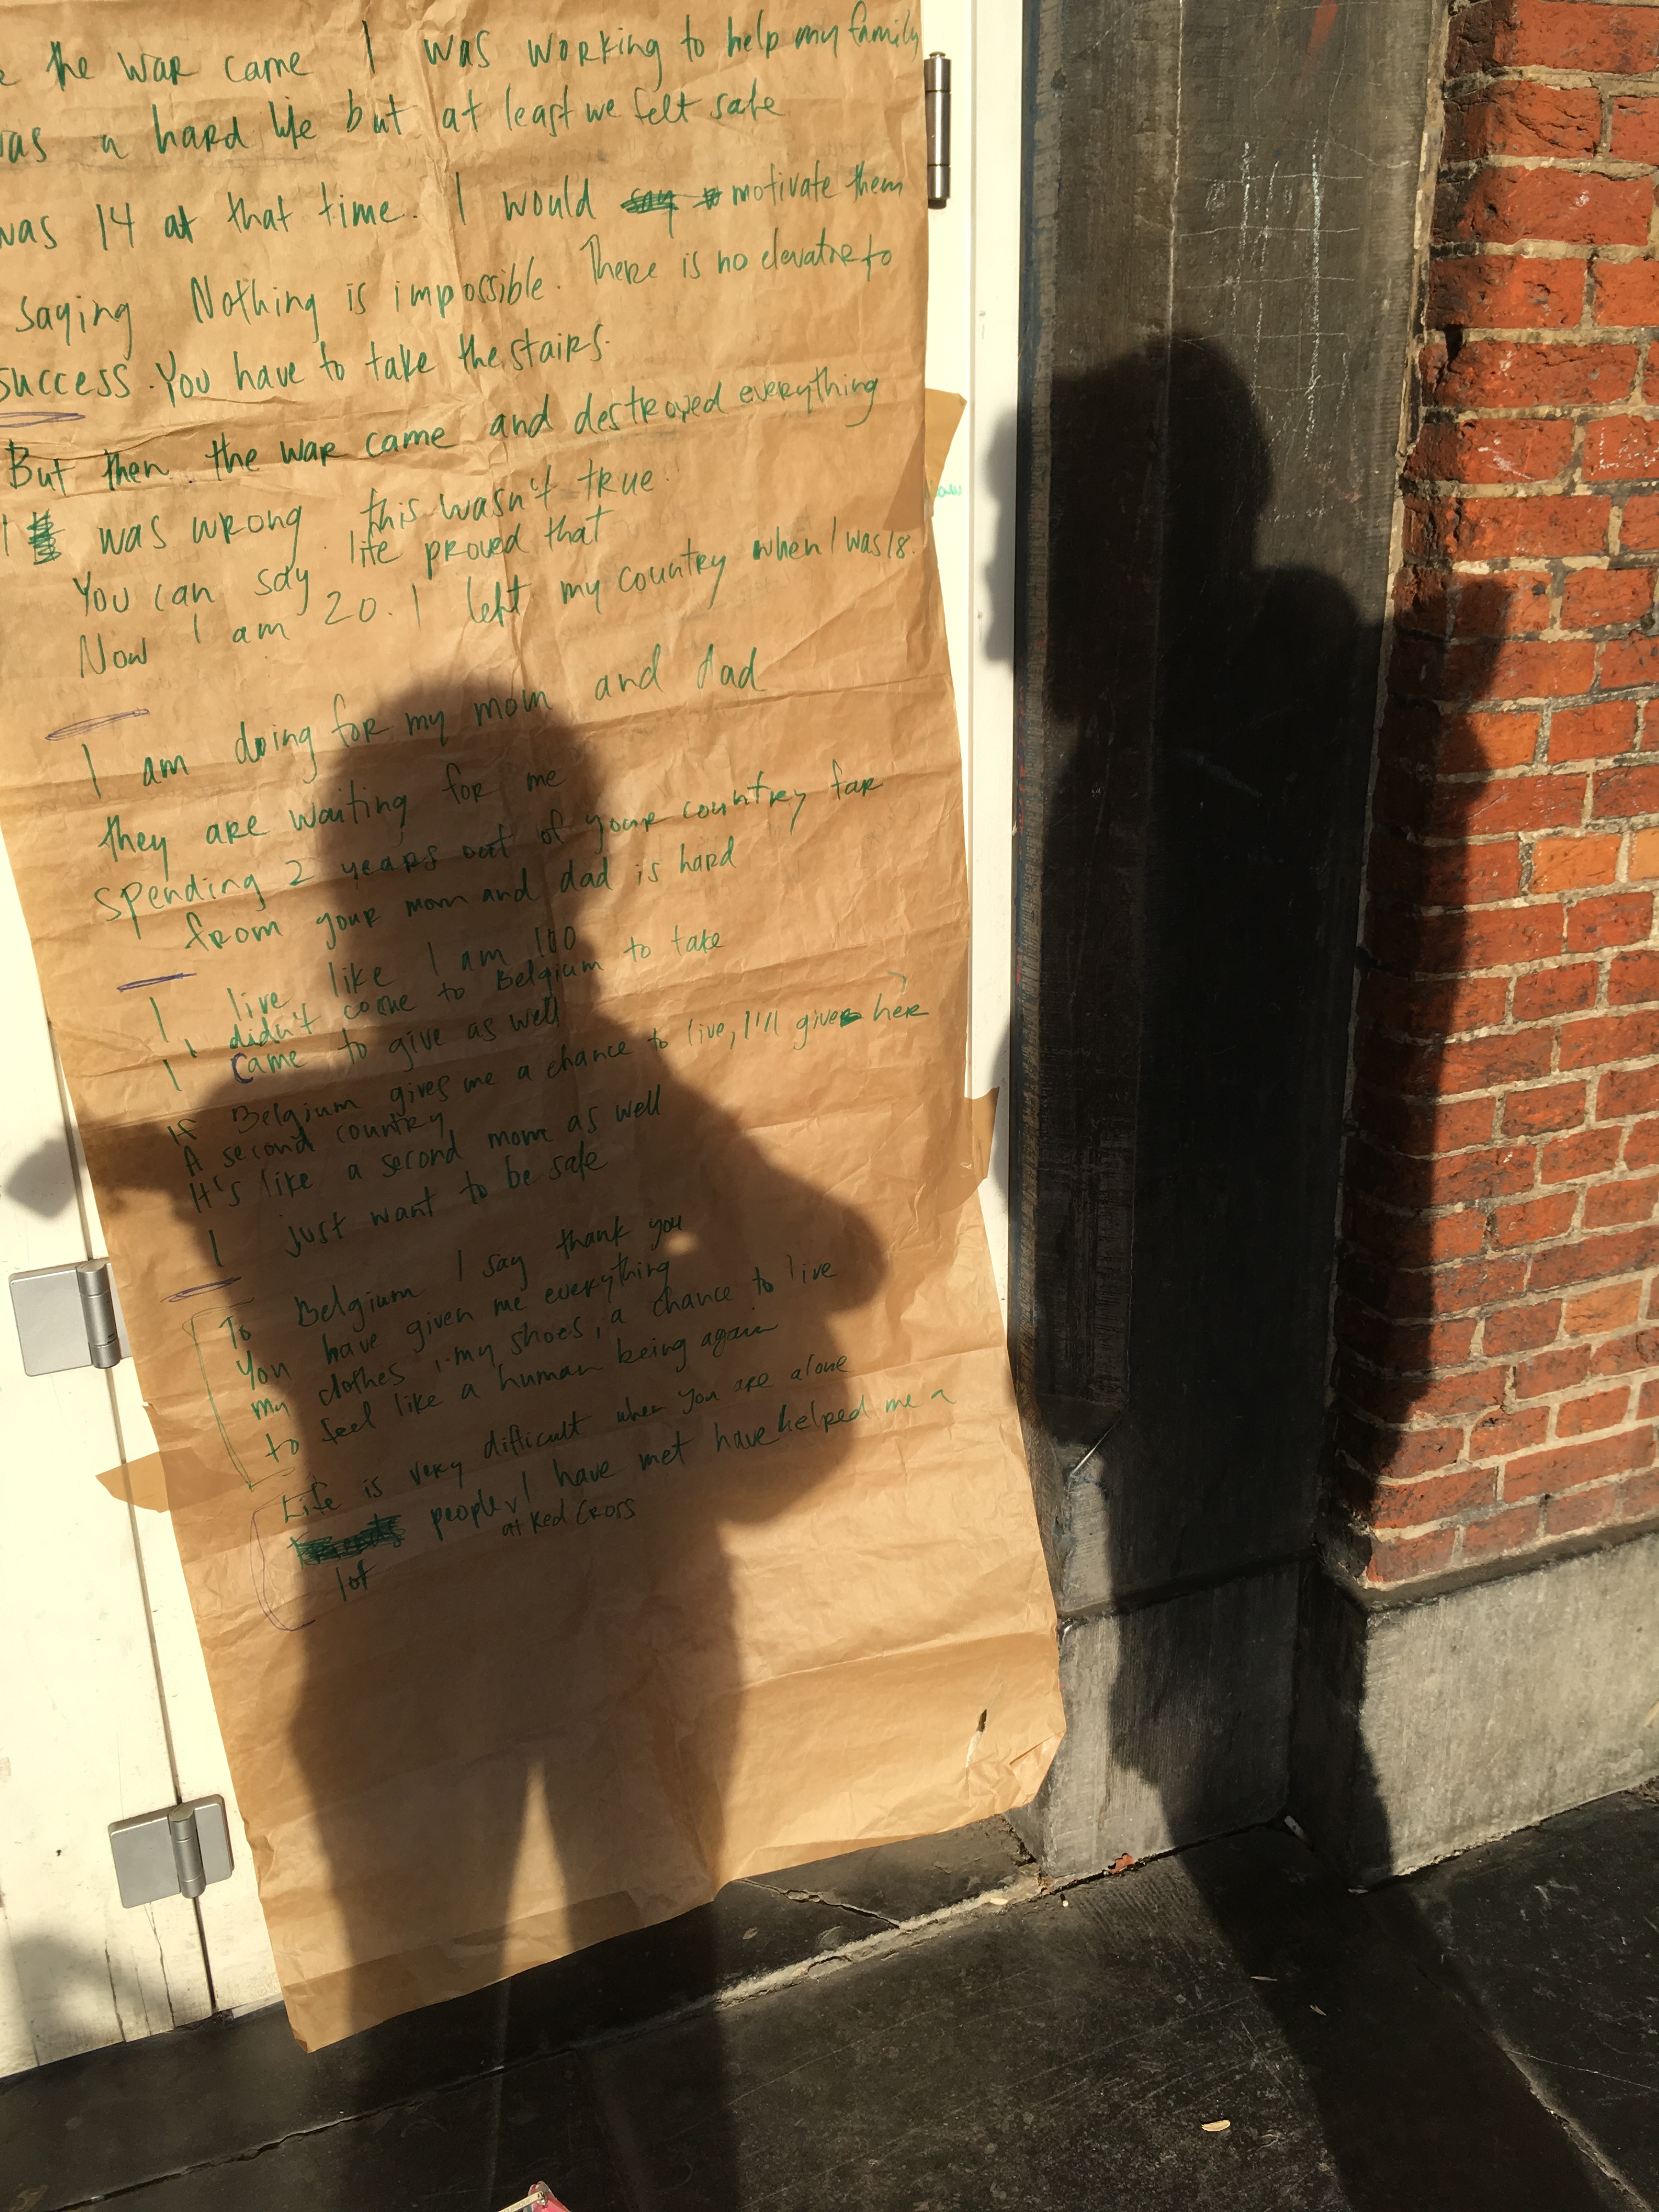 the war came I was working to help my family
was a hard life but at least we felt safe
was 14 at that time. I would motivate them
saying Nothing is impossible. There is no elevator to
success. You have to take the stairs.
But then the war came and destroyed everything
I was wrong. this wasn't true.
You can say life proved that
Now I am 20. I left my country when I was 18.
I am doing for my mom and dad
they are waiting for me
spending 2 years out of your country far
from your mom and dad is hard
I live like I am 100
I didn't come to Belgium to take
I came to give as well
If Belgium gives me a chance to live, I'll give here
A second country
It's like a second mom as well
I just want to be safe
To Belgium I say thank you
You have given me everything
my clothes, my shoes, a chance to live
to feel like a human being again
Life is very difficult when you are alone
people I have met have helped me a
at Red Cross
lot